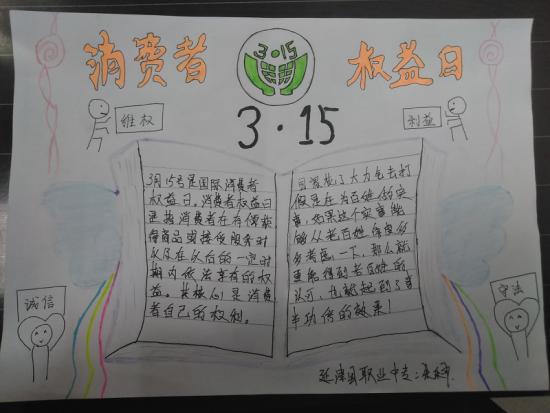 消费者
3·15
权益日
维权
3·15
利益
3月15号是国际消费者
权益日。消费者权益日
是指消费者在有偿获
得商品或接受服务时
以及在以后的一定时
期内依法享有的权
益。其核心是消费
者自己的权利。
花了大力气去打
假是在为百姓的实
事,如果这个实事能
够从老百姓
多考虑一下,那么就
更能得到老百姓的
认可,也就起到了事
半功倍的效果!
诚信
守法
延津县职业中专: